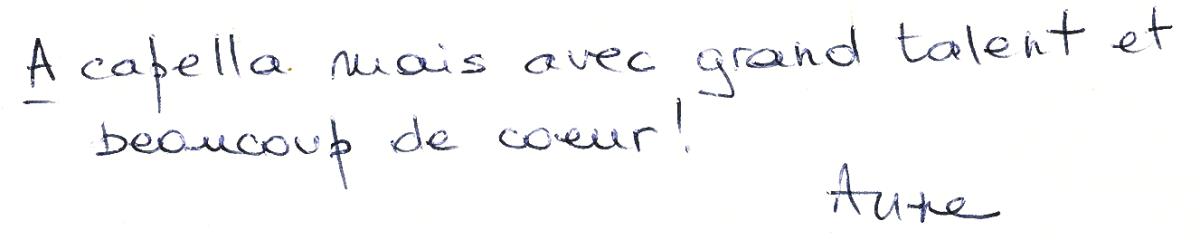 A capella mais avec grand talent et
beaucoup de coeur!